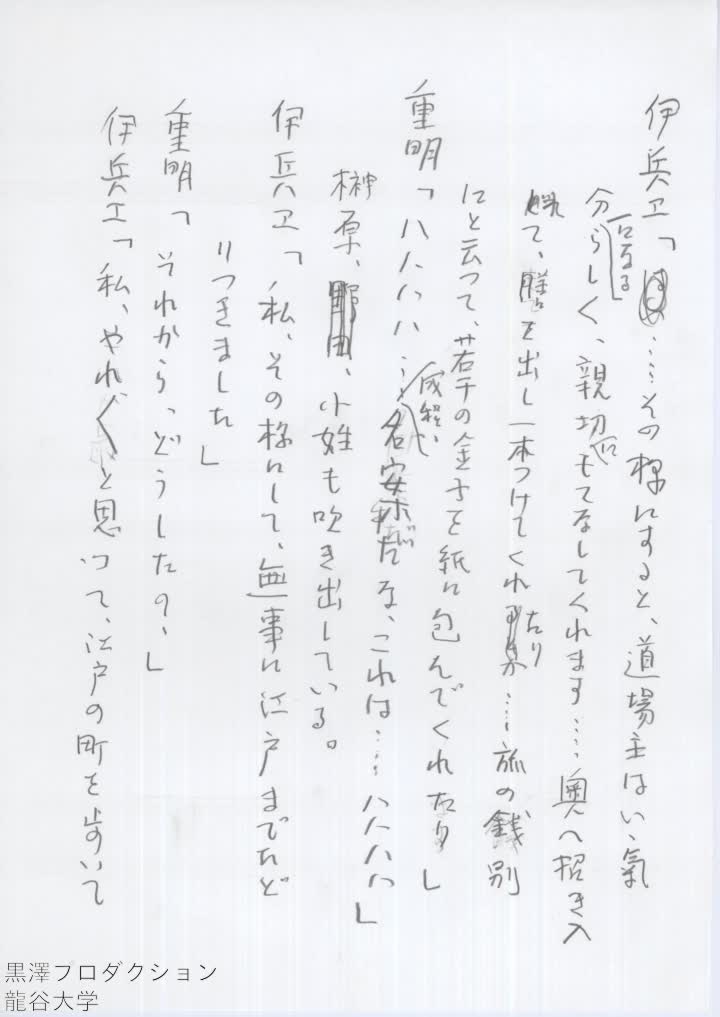 伊兵ヱ「……その様にすると、道場主はいゝ氣
分らしく、親切にもてなしてくれます……奥へ招き入
れて、膳を出し一本つけてくれたり……旅の餞別
にと云つて、若干の金子を紙に包んでくれたり」
重明「ハハハハ……成程、名案だな、これは……ハハハハ」
榊原、小姓も吹き出している。
伊兵ヱ「私、その様にして、無事に江戸までたど
りつきました」
重明「それから、どうしたの、」
伊兵ヱ「私、やれ〱と思つて、江戸の町を歩いて
黒澤プロダクション
龍谷大学